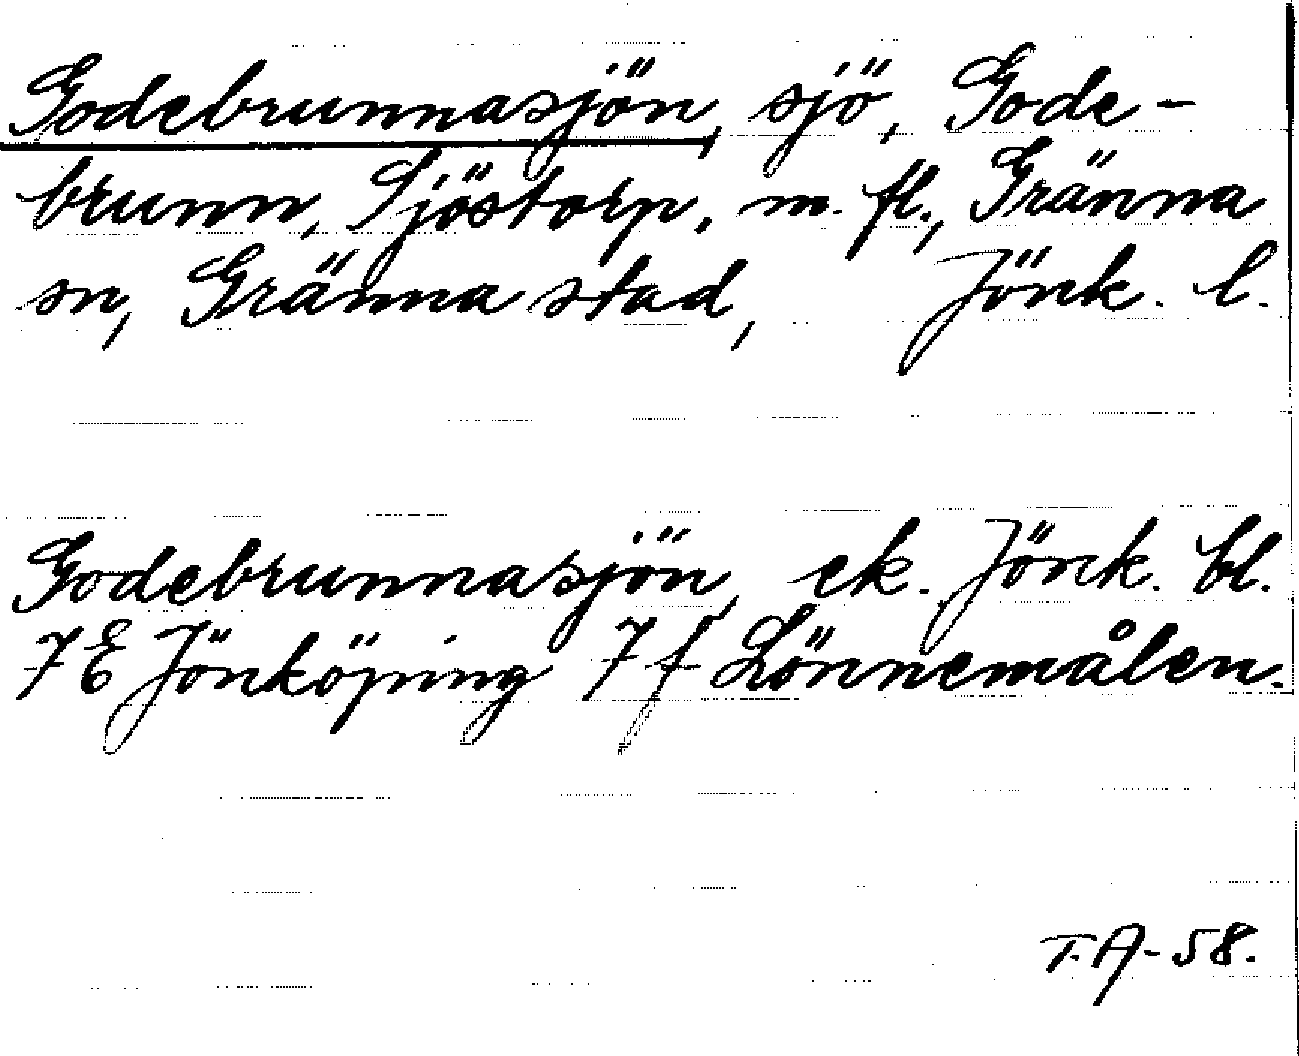 Godebrunnasjön, sjö, Gode-
brunn, Sjöstorp, m. fl., Gränna
sn, Gränna stad, Jönk. l.
Godebrunnasjön, ek. Jönk. bl.
7E Jönköping 7f Lönnemålen.
T.A-58.